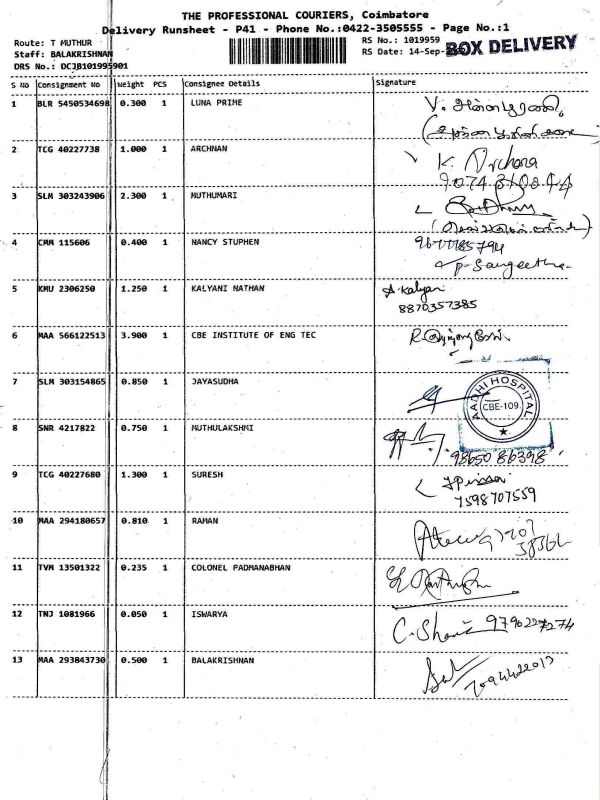 THE PROFESSIONAL COURIERS, Coimbatore
Delivery Runsheet - P41 - Phone No.:0422-3505555 - Page No.:1
Route: T MUTHUR
Staff: BALAKRISHNAN
DRS No.: DCJB101995901
RS No.: 1019959
RS Date: 14-Sep-
BOX DELIVERY
S No Consignment No Weight PCS Consignee Details Signature
1 BLR 5450534698 0.300 1 LUNA PRIME V.
2 TCG 40227738 1.000 1 ARCHNAN K. Archana
3 SLM 303243906 2.300 1 MUTHUMARI
4 CMM 115606 0.400 1 NANCY STUPHEN
P. Sangeetha
5 KMU 2306250 1.250 1 KALYANI NATHAN A. Kalyani
8870357385
6 MAA 566122513 3.900 1 CBE INSTITUTE OF ENG TEC
7 SLM 303154865 0.850 1 JAYASUDHA
AADHI HOSPITAL
CBE-109
8 SNR 4217822 0.750 1 MUTHULAKSHMI
98650 86398
9 TCG 40227680 1.300 1 SURESH
7598707559
10 MAA 294180657 0.810 1 RAMAN
11 TVM 13501322 0.235 1 COLONEL PADMANABHAN
12 TNJ 1081966 0.050 1 ISWARYA
13 MAA 293843730 0.500 1 BALAKRISHNAN